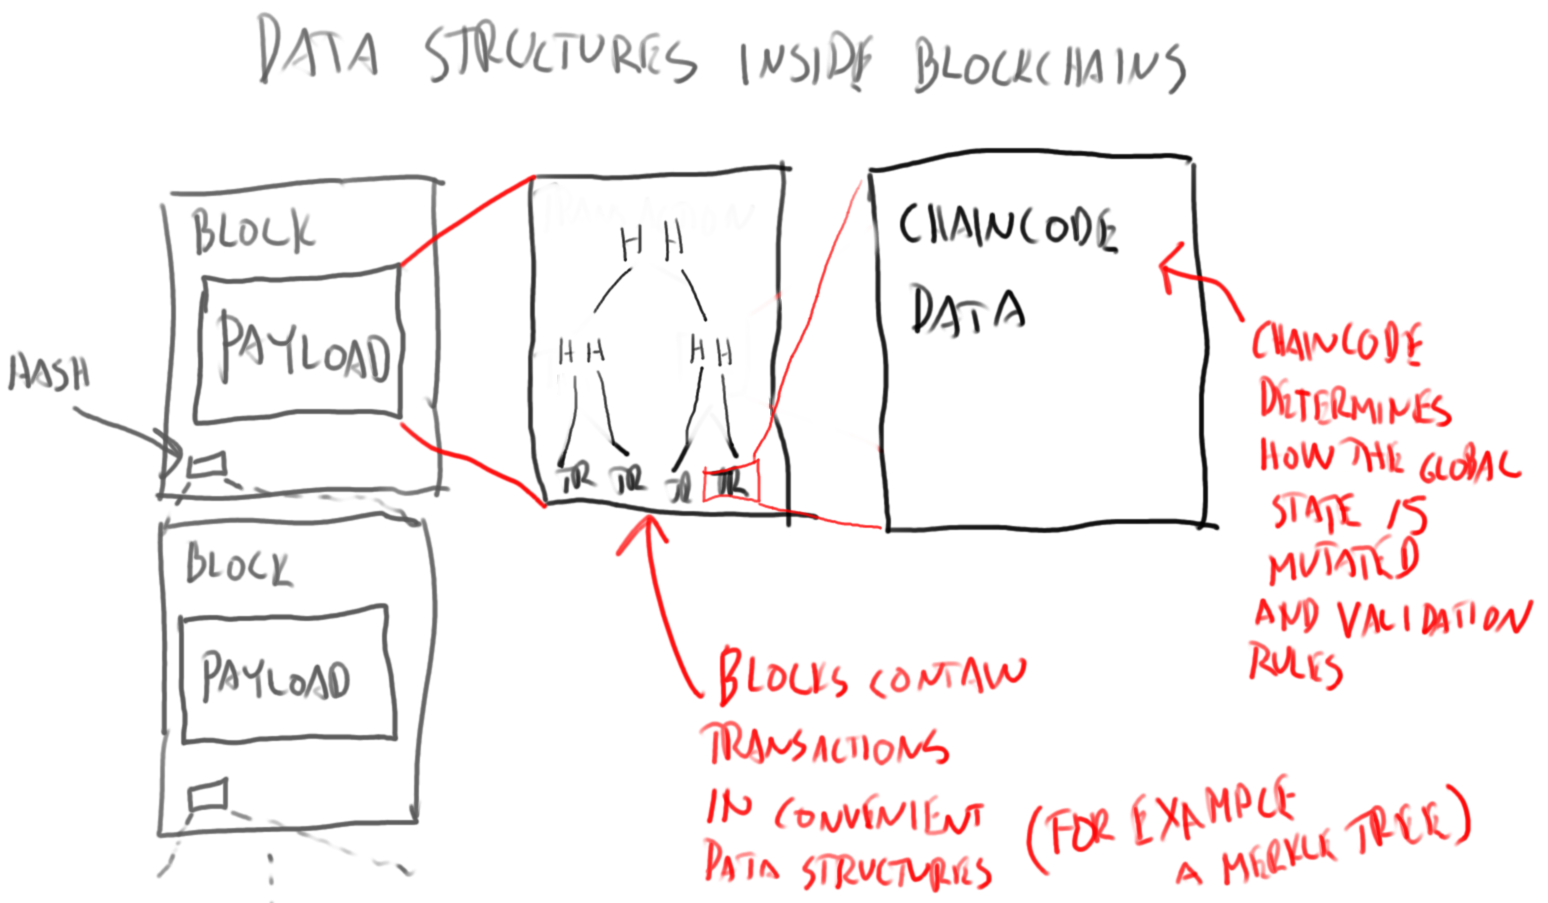 DATA STRUCTURES INSIDE BLOCKCHAINS
BLOCK
PAYLOAD
HASH
BLOCK
PAYLOAD
TRANSACTION
H H
H H
H H
TR TR TR TR
CHAINCODE
DATA
CHAINCODE
DETERMINES
HOW THE GLOBAL
STATE IS
MUTATED
AND VALIDATION
RULES
BLOCKS CONTAIN
TRANSACTIONS
IN CONVENIENT
DATA STRUCTURES
(FOR EXAMPLE
A MERKLE TREE)